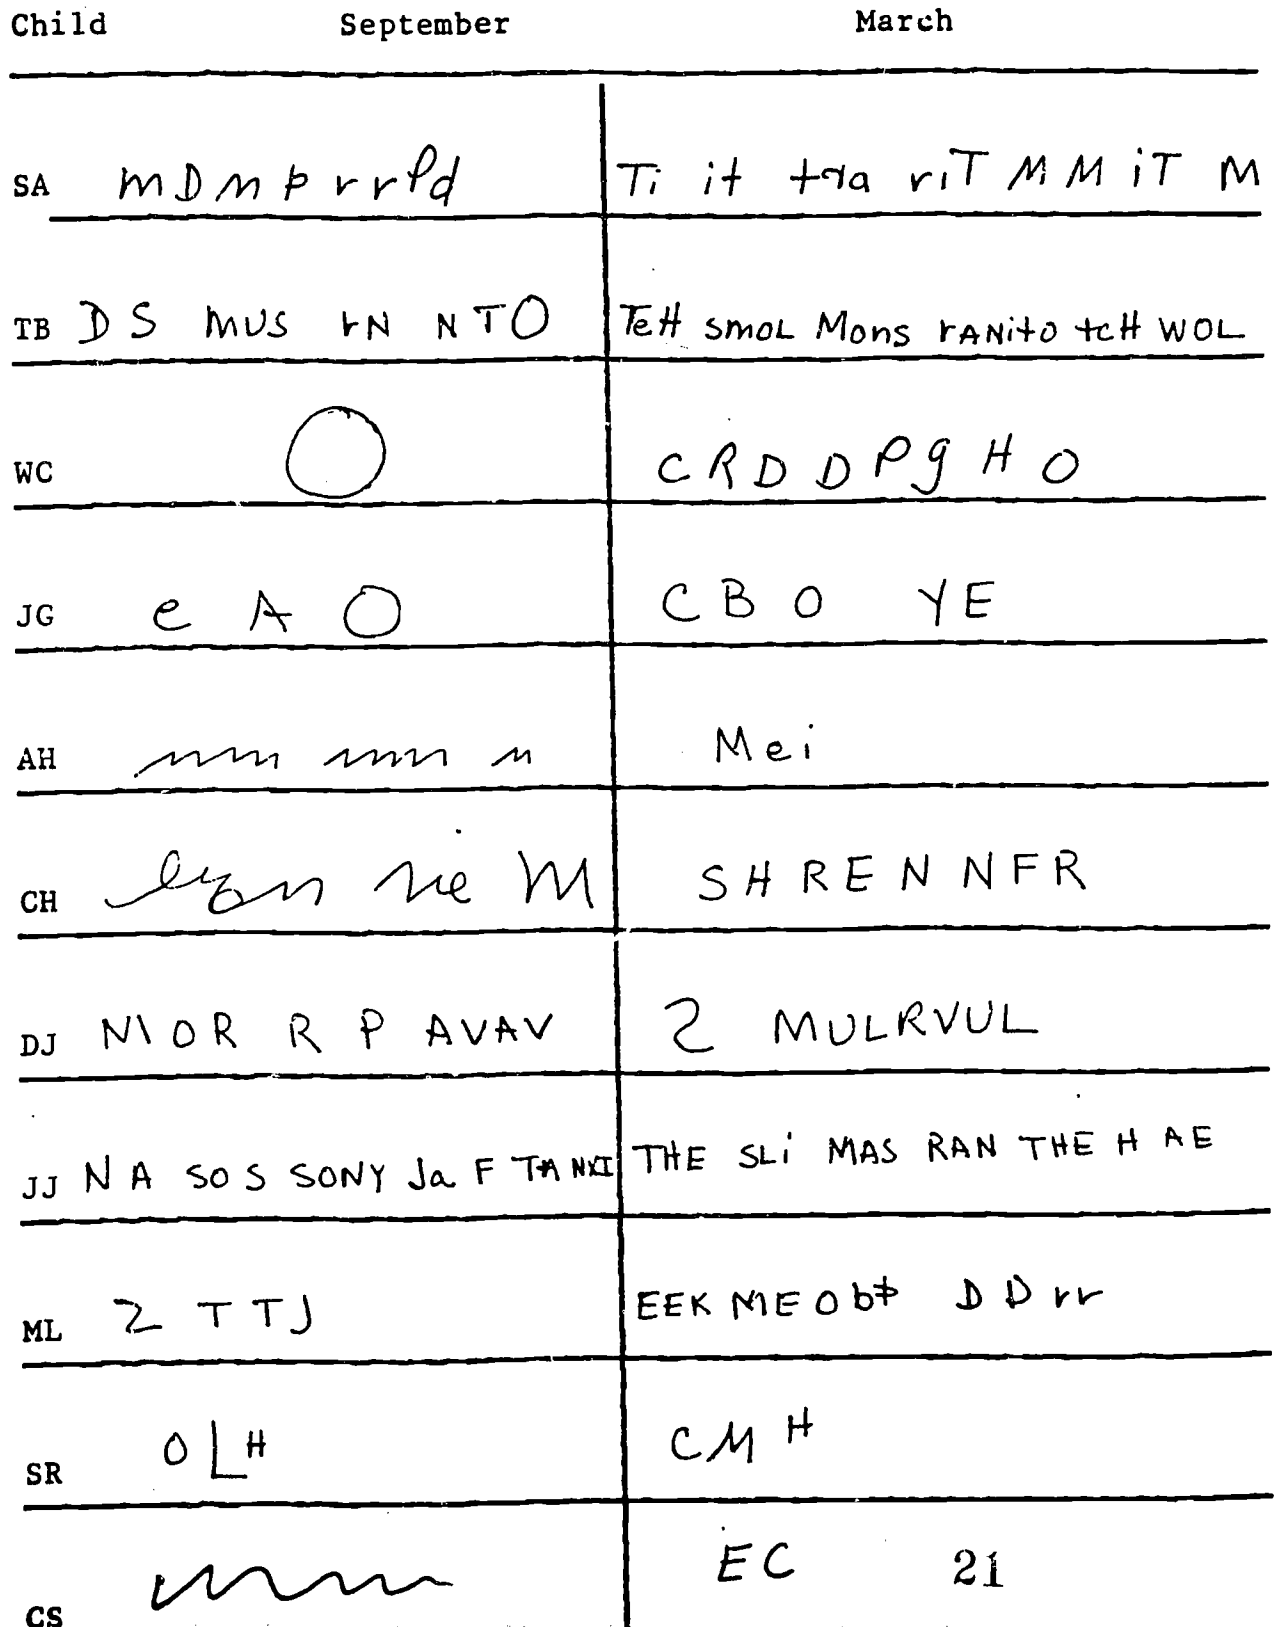 Child September March
SA mDmprrPd Ti it tra riT MMiT M
TB DS mus rN NTO TeH smoL Mons rANito tcH WOL
WC O CRDDPgHO
JG e A O CBO YE
AH Mei
CH SHRENNFR
DJ NIOR R P AVAV 2 MULRVUL
JJ NA SO S SONY Ja F THE SLi MAS RAN THE H AE
ML 2 TTJ EEK MEObt DDrr
SR OLH CMH
CS EC 21